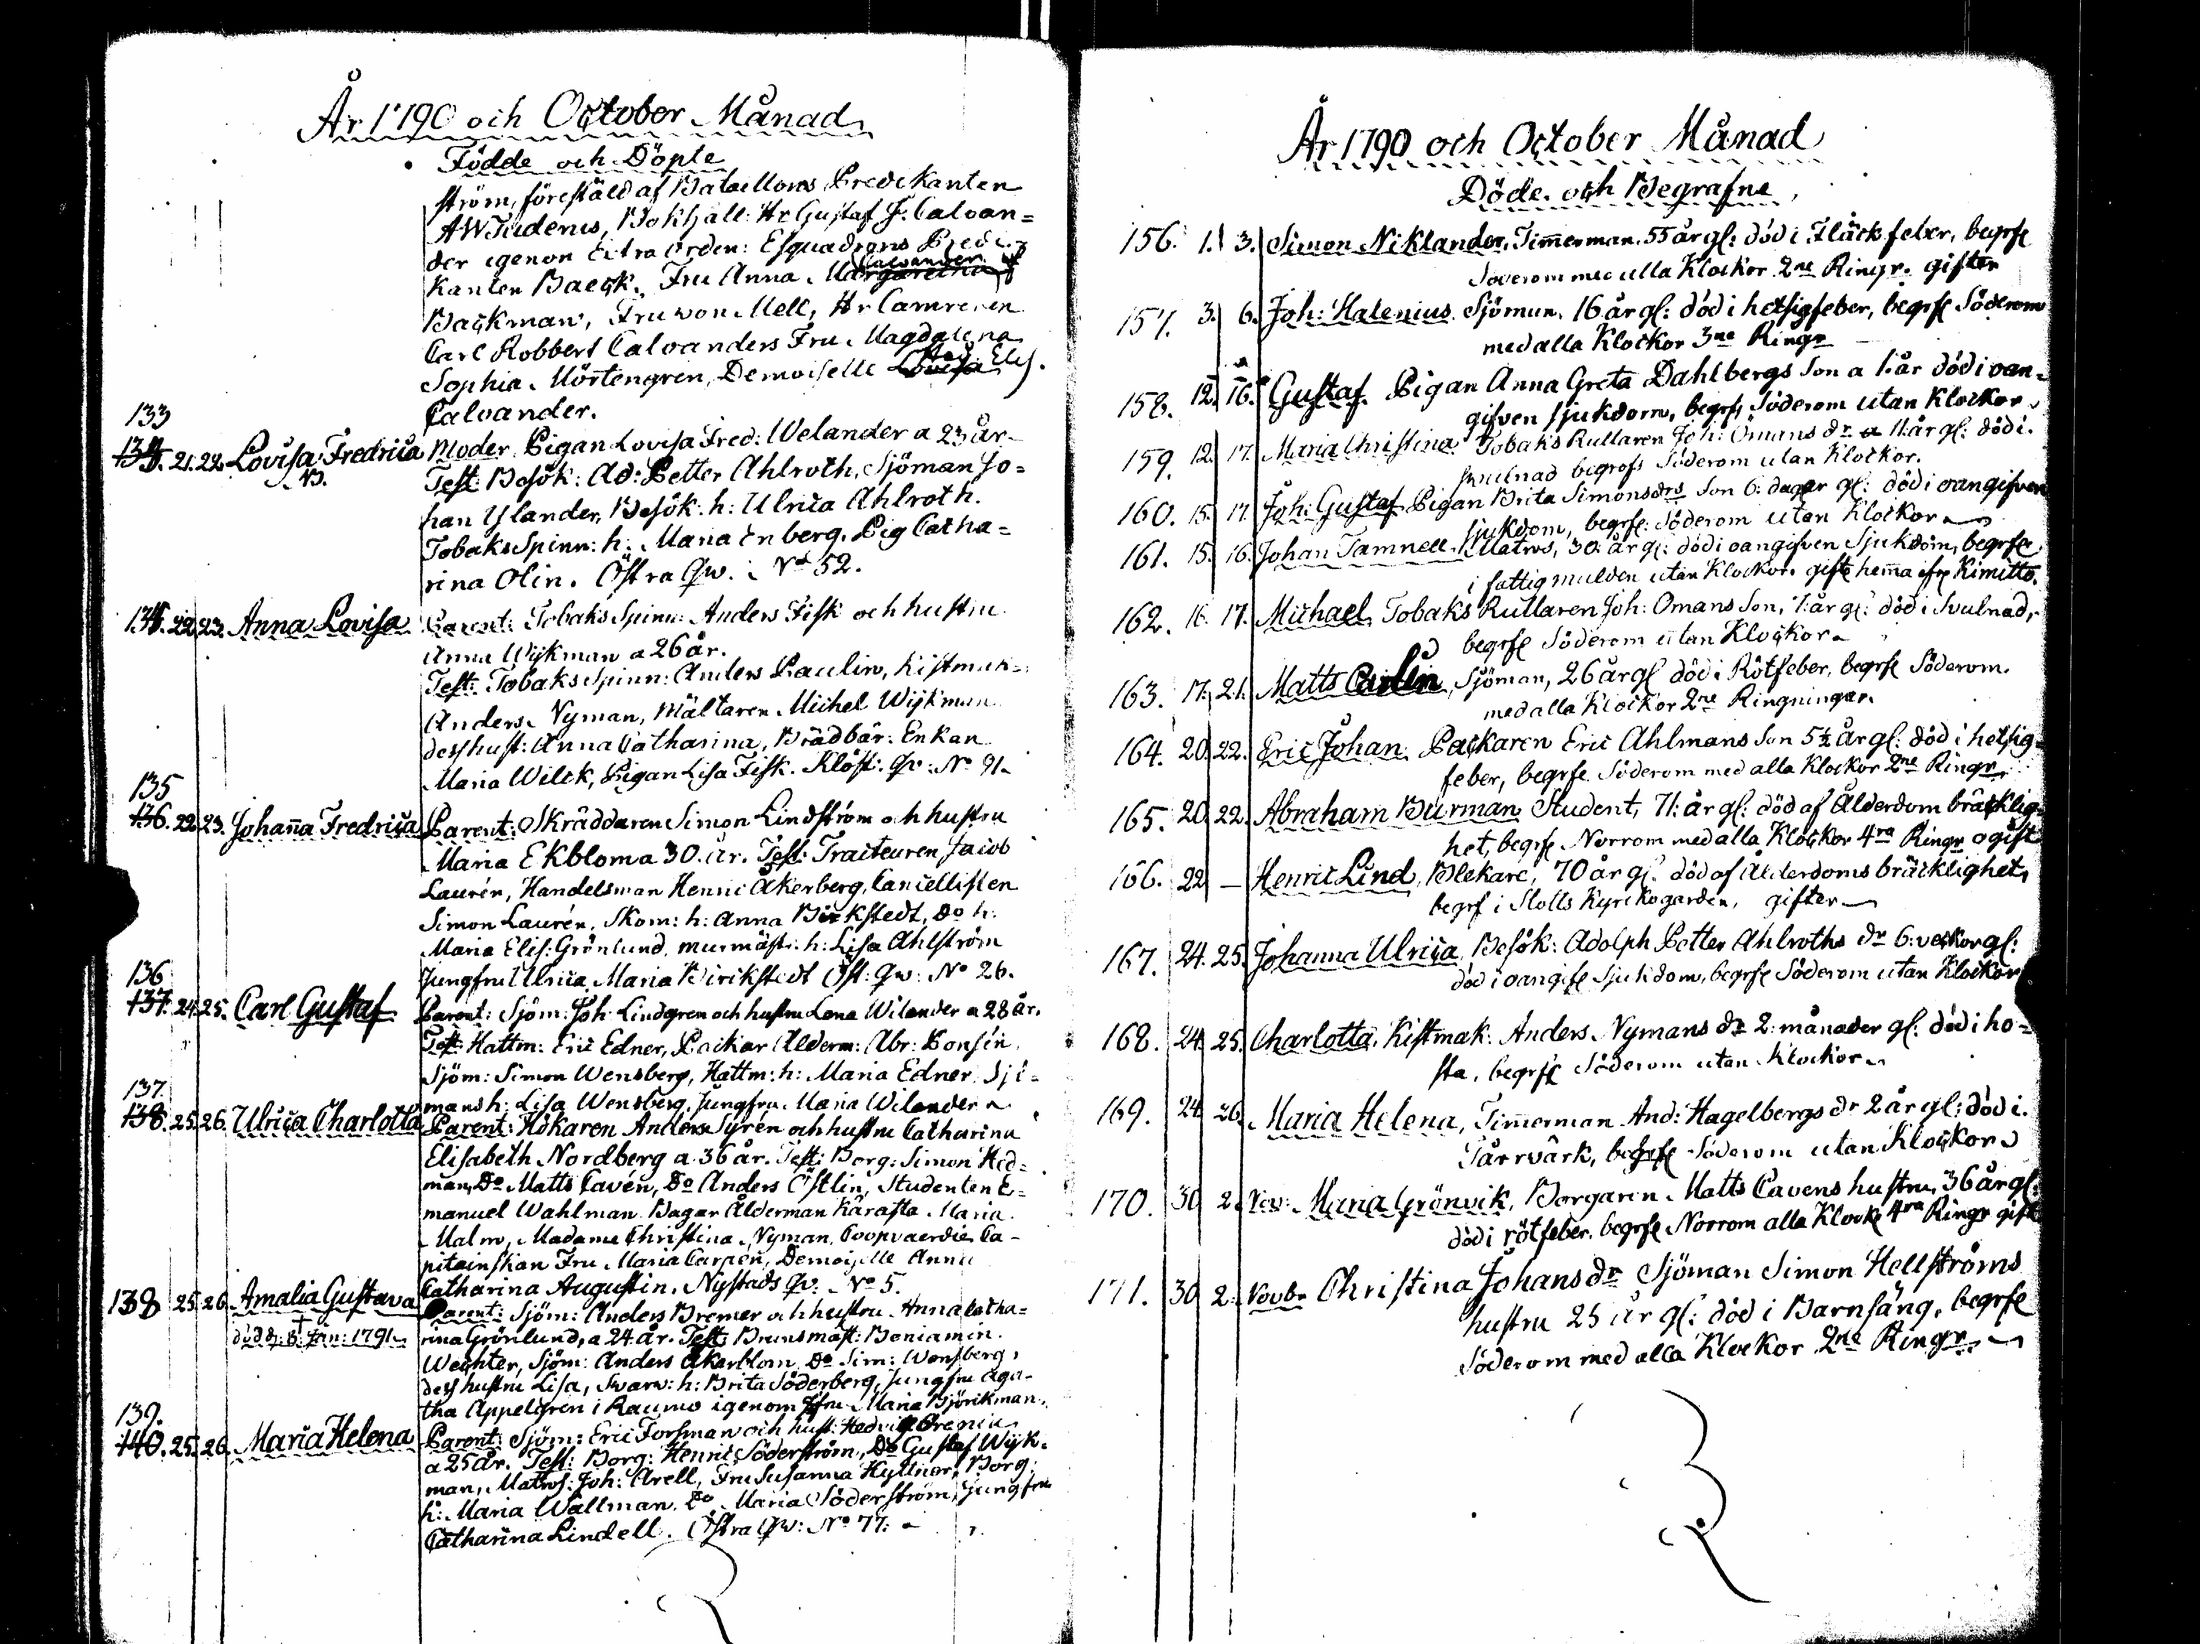 År 1790 och October Månad
Födde och Döpte
ström, föreställd af Bataillons Predikanten
AW Tudenus, Bokhåll: Hr Gustaf J. Calvan=
der igenom Extra Orden: Esquadrons Predi=
kanten Baeçk, Fru Anna Margaretha Calvander
Baçkman, Fru von Mell, Hr Camreren
Carl Robbert Calvanders Fru Magdalena
Sophia Mörtengren, Demoiselle Lovisa Elis.
Calvander.
133
134. 21. 22. Lovisa Fredrica Moder Pigan Lovisa Fred: Welander a 23 år
Test: Besök: Ad: Petter Ahlroth, Sjöman Jo=
han Ylander, Besök: h: Ulrica Ahlroth.
Tobaks Spinn: h: Maria Enberg. Pig Catha=
rina Olin. Östra Qw. No 52.
22. 23. Anna Lovisa Parent: Tobaks Spinn: Anders Fisk och hustru
Anna Wijkman a 26 år.
Test: Tobaks Spinn: Anders Paulin, Kistmak:
Anders Nyman, Mältaren Michel Wijkman
dess hust: Anna Catharina, Brädbär: Enkan
Maria Wilck, Pigan Lisa Fisk. Klöst: Qv: No 91.
135
136. 22. 23. Johan̄a Fredrica Parent: Skräddaren Simon Lindström och hustru
Maria Ekblom a 30 år. Test: Traiteuren Jacob
Laurén, Handelsman Henric Åkerberg, Cancellisten
Simon Laurén, Skom: h: Anna Birkstedt, Do h:
Maria Elis: Grönlund, murmäst: h: Lisa Ahlström
Jungfru Ulrica Maria Birckstedt Öst: Qw: No 26.
136
137. 24. 25. Carl Gustaf Parent: Sjöm: Joh: Lindgren och hustru Lena Wilander a 28 år.
Test: Hattm: Eric Edner, Packar Ålderm: Abr: Ponsén,
Sjöm: Simon Wensberg, Hattm: h: Maria Edner, Sjö=
mans h: Lisa Wensberg, Jungfru Maria Wilander
137.
138. 25. 26. Ulrica Charlotta Parent: Hökaren Anders Syrén och hustru Catharina
Elisabeth Nordberg a 36 år. Test: Borg: Simon Hed=
man, Do Matts Cavén, Do Anders Östlin, Studenten E=
manuel Wahlman. Bagar Ålderman Kärasta Maria
Malm, Madame Christina Nyman, Coopvaerdie Ca=
pitainskan Fru Maria Carpén, Demoiselle Anna
Catharina Augustin. Nystads Qv: No 5.
138 25. 26. Amalia Gustava Parent: Sjöm: Anders Bremer och hustru Anna Catha=
död d. Jan: 1791 rina Grönlund, a 24 år. Test: Brunsmäst: Beniamin
Weçhter, Sjöm: Anders Åkerblom, Do Sim: Wensberg,
dess hustru Lisa, Svarv: h: Brita Söderberg, Jungfru Aga=
tha Appelgren i Raumo igenom Jfru Maria Björkman.
139.
140. 25. 26. Maria Helena Parent: Sjöm: Eric Forsman och hust: Hedvig
a 25 år. Test: Borg: Henric Söderström, Do Gustaf Wijk=
man, Matros: Joh: Arell, Fru Susanna Hyllner, Borg:
h: Maria Wallman, Do Maria Söderström, Jungfru
Catharina Lindell. Östra Qw: No 77.
År 1790 och October Månad
Döde och Begrafne
156. 1. 3. Simon Niklander, Tim̄erman, 55 år gl: död i Fläckfeber, begrfs
Söderom med alla Klockor 2ne Ringr. gifter
157. 3. 6. Joh: Halenius Sjöman, 16 år gl: död i hetsigfeber, begrfs Söderom
med alla Klockor 3ne Ringr
158. 12. 16. Gustaf. Pigan Anna Greta Dahlbergs Son a 1. år död i oan=
gifven sjukdom, begrfs Söderom utan Klockor
159. 12. 17. Maria Christina Tobaks Rullaren Joh: Omans dr a 11. år gl: död i
svulnad begrafs Söderom utan Klockor.
160. 15. 17. Joh: Gustaf Pigan Brita Simonsdrs Son 6: dagar gl: död i oangifven
sjukdom, begrfs: Söderom utan Klockor
161. 15. 16. Johan Tamnell. Matros, 30: år gl: död i oangifven Sjukdom, begrfs
i fattigmulden utan Klockor. gift hem̄a ifr Kimitto.
162. 16. 17. Michael, Tobaks Rullaren Joh: Omans Son, 1: år gl: död i Svulnad,
begrfs Söderom utan Kloçkor
163. 17. 21. Matts Carlin, Sjöman, 26 år gl död i Rötfeber, begrfs Söderom
med alla Klockor 2ne Ringningar.
164. 20. 22. Eric Johan Packaren Eric Ahlmans Son 5½ år gl: död i hetsig=
feber, begrfs Söderom med alla Klockor 2ne Ringr
165. 20. 22. Abraham Burman Student, 71: år gl: död af Ålderdom bräcklig=
het, begrfs Norrom med alla Kloçkor 4ra Ringr ogift
166. 22 — Henric Lind, Blekare, 70 år gl: död af Ålderdoms bräcklighet,
begrf i Slotts Kyrckogården, gifter
167. 24. 25. Johanna Ulrica Besök: Adolph Petter Ahlroths dr 6: veckor gl:
död i oangifs Sjukdom, begrfs Söderom utan Klockor
168. 24. 25. Charlotta, Kistmak: Anders Nymans dr 2: månader gl: död i ho=
sta, begrfs Söderom utan Klockor
169. 24. 26. Maria Helena, Tim̄erman And: Hagelbergs dr 2 år gl: död i
Tårrvärk, begrfs Söderom utan Kloçkor
170. 30 2. Nov: Maria Grönvik, Borgaren Matts Cavens hustru, 36 år gl:
död i rötfeber, begrfs Norrom alla Klock: 4ra Ringr gift
171. 30 2. Novbr Christina Johansdr Sjöman Simon Hellströms
hustru 25 år gl: död i Barnsäng, begrfs
Söderom med alla Klockor 2ne Ringr